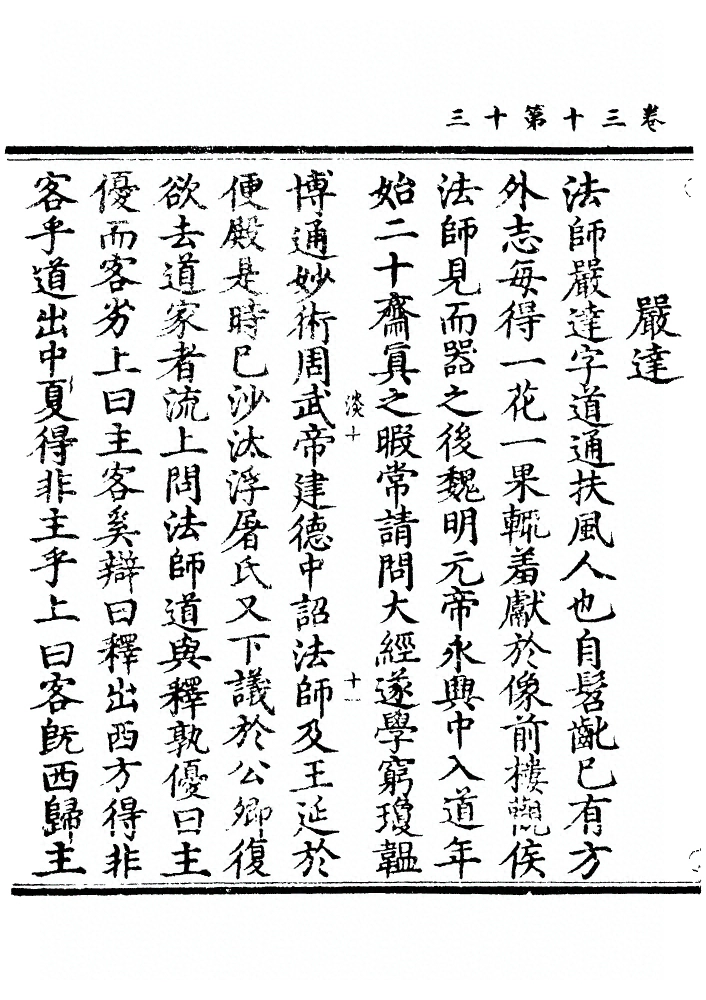 卷三十第十三
嚴達
法師嚴達字道通扶風人也自髫齓已有方
外志每得一花一果輒羞獻於像前樓觀侯
法師見而器之後魏明元帝永興中入道年
始二十齋寘之暇常請問大經遂學窮瓊韞
淡十 十一
博通妙術周武帝建德中詔法師及王延於
便殿是時已沙汰浮屠氏又下議於公卿復
欲去道家者流上問法師道與釋孰優曰主
優而客劣上曰主客奚辯曰釋出西方得非
客乎道出中夏得非主乎上曰客既西歸主